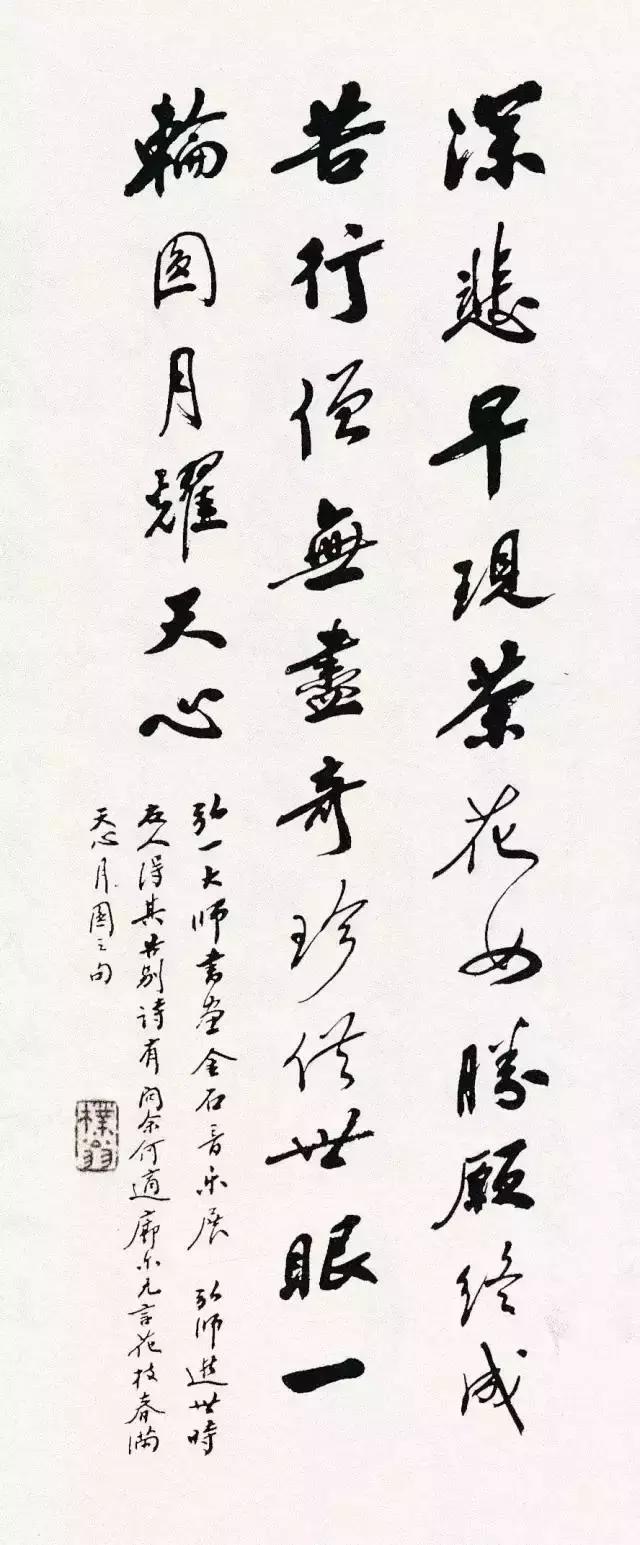 深悲早現茶花女勝願終成
苦行僧無盡奇珍供世眼一
輪圓月耀天心
弘一大師書畫金石音乐展 弘師逝世時
友人得其告別詩有问余何適廓尔无言花枝春滿
天心月圓之句
樸翁